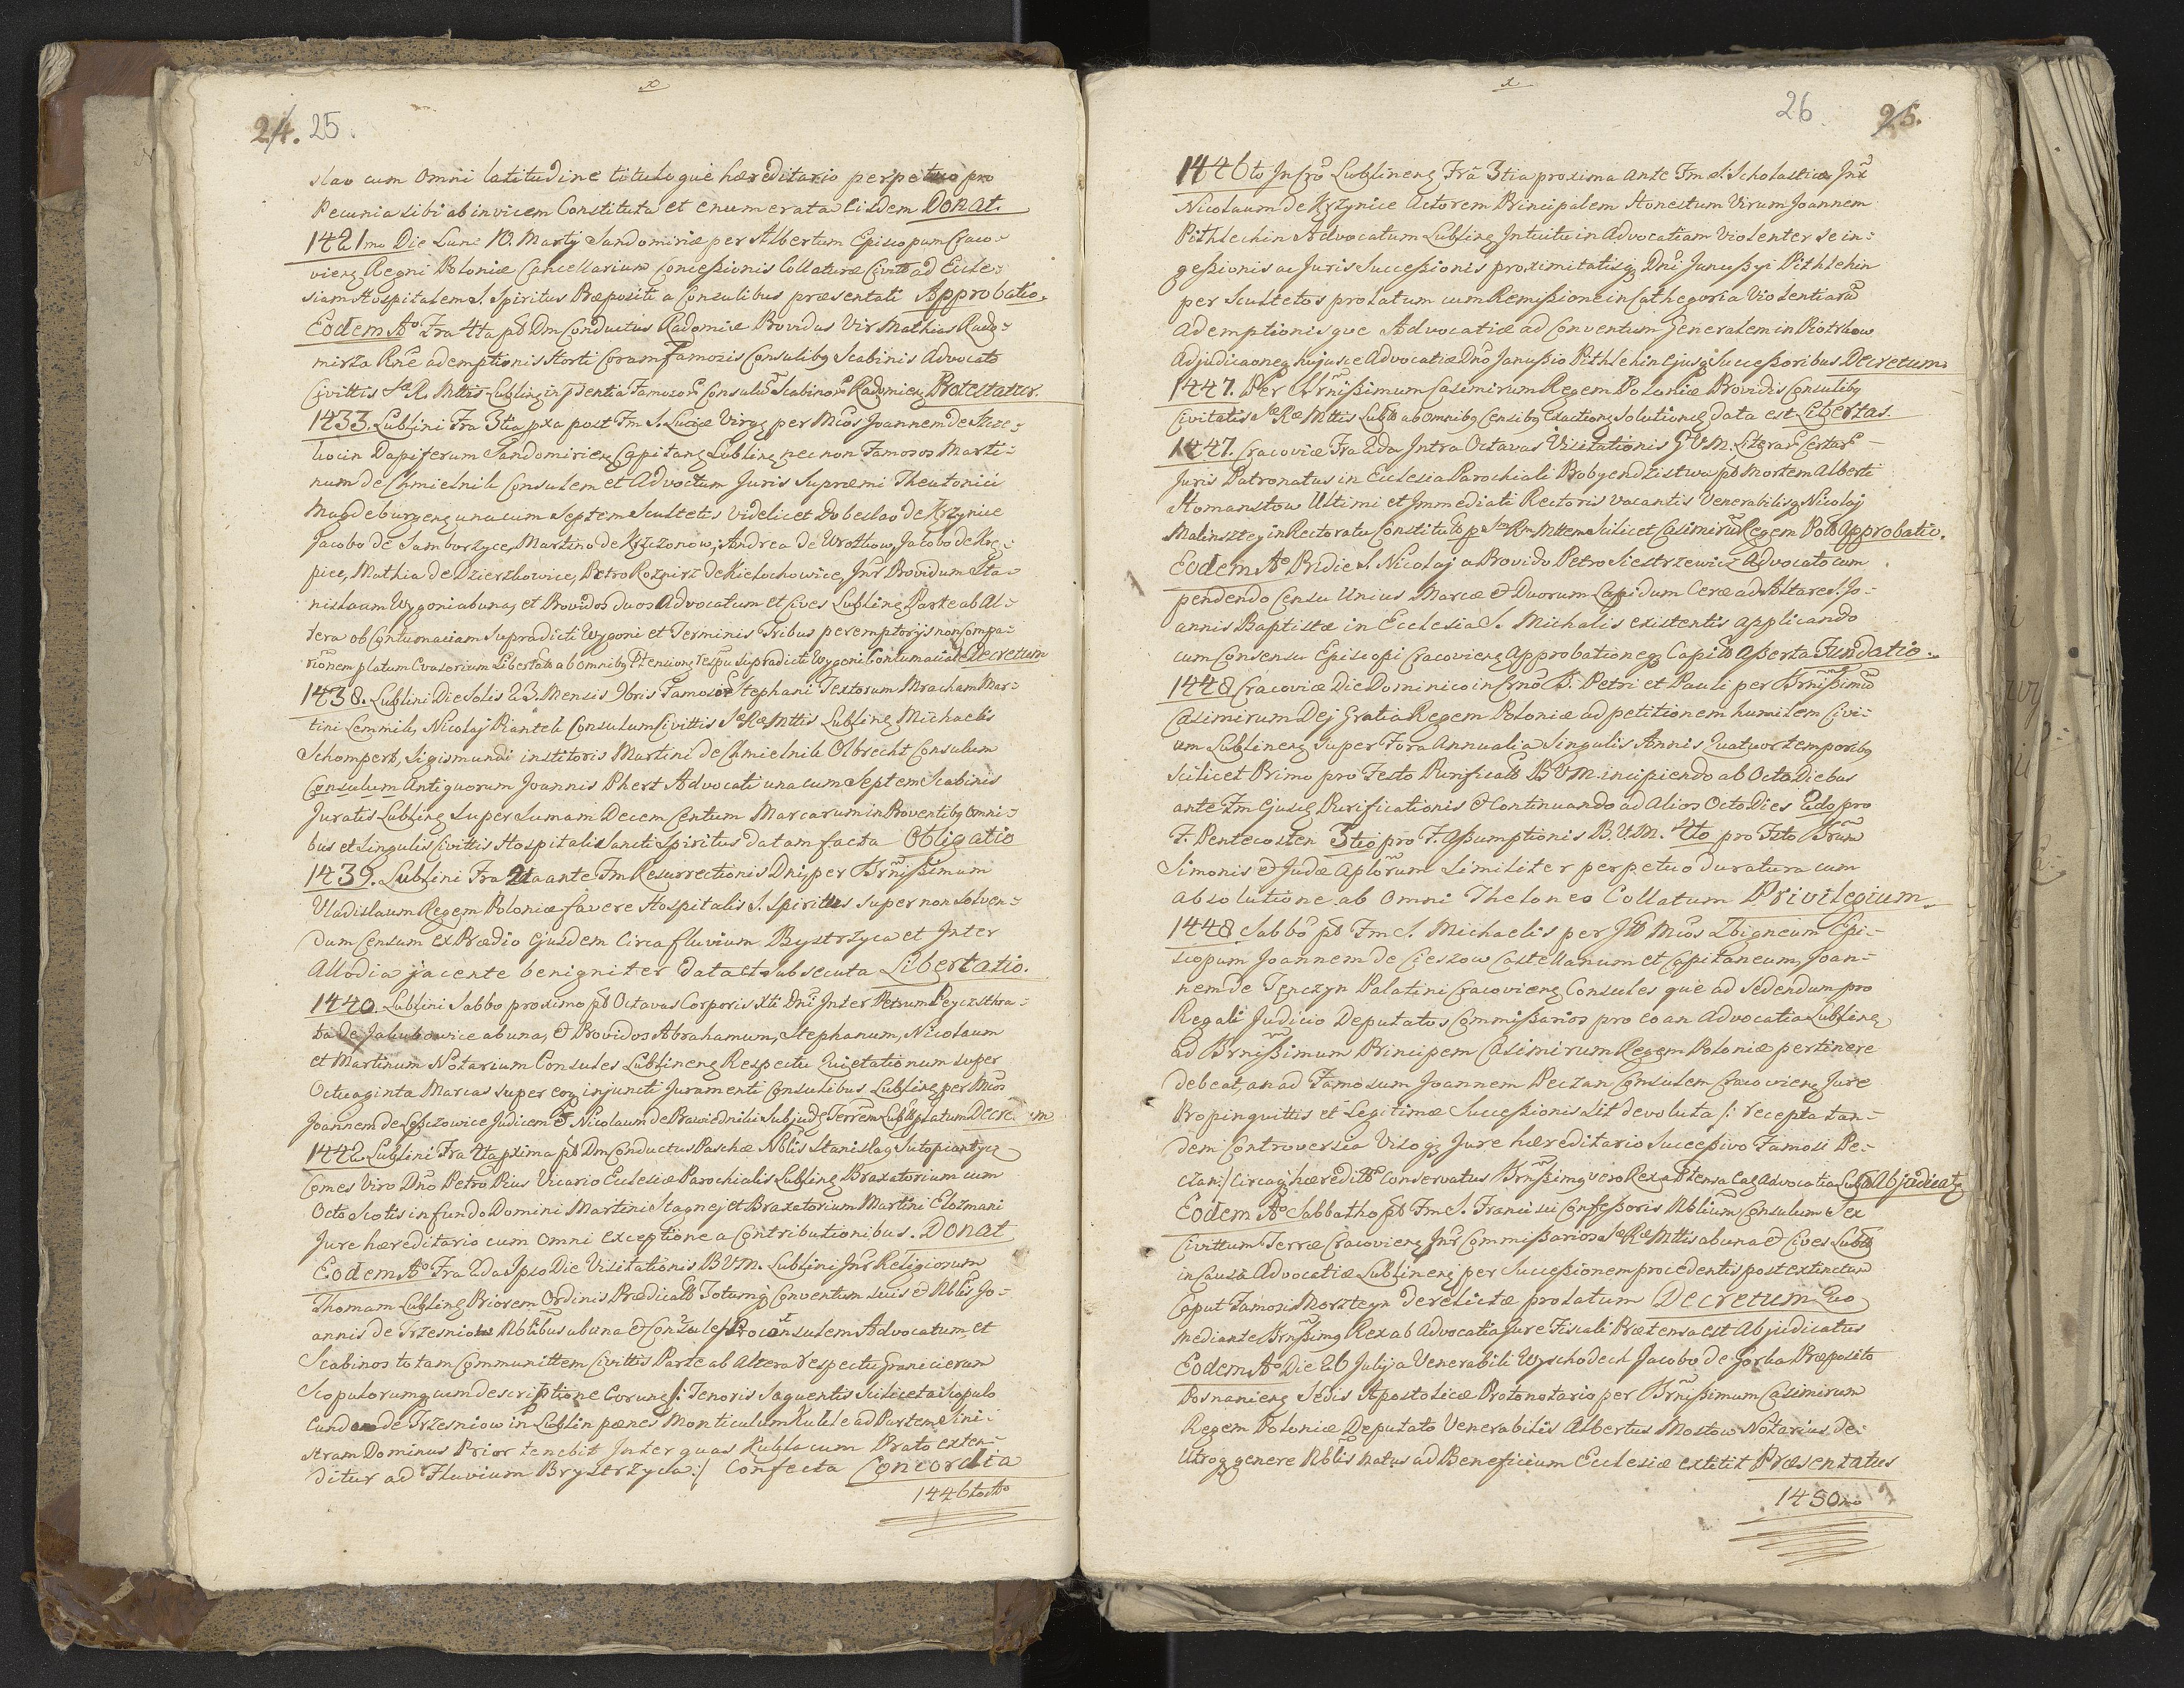 24. 25.
slao cum Omni latitudine tituloque hæreditario perpetuo pro
Pecunia sibi ab invicem Constituta et enumerata Eisdem Donat.
1421mo Die Lunæ 10. Martij Sandomiriæ per Albertum Episcopum Craco-
vieng Regni Poloniæ Cancellarium Concessionis Collaturæ Civitti ad Eccle-
siam Hospitalem S. Spiritus Præpositi a Consulibus præsentati Approbatio.
Eodem Aº Fra 4ta pt Dm Conductus Radomiæ Providus Vir Mathias Rado-
mirza Rne ademptionis Horti Coram Famosis Consulibq Scabinis Advocato
Civittis S R. Mttis Lubling in Psentia Famosor Consulu Scabinor Radomieng Protestatur.
1433. Lublini Fra 3tia pxa post Fm S. Luciæ Virgs per Mcos Joannem de Szcze-
kocin Dapiferum Sandomirieng Capitang Lubling nec non Famosos Marti-
num de Chmielnik Consulem et Advoctum Juris Supræmi Theutonici
Magdeburgeng una cum Septem Scultetis videlicet Dobeslao de Krzynice
Jacobo de Samborzyce, Martino de Krzczonow, Andrea de Wrotkow, Jacobo de Krę-
pice, Mathia de Dzierzkowice, Petro Kozpirz de Kielochowice, Jnr Providum Sta-
nislaum Wygoni ab una, et Providos duos Advocatum et Cives Lubling Parte ab Al-
tera ob Contumaciam Supradicti Wygoni et Terminis Tribus peremptorijs non Compa-
rionem platum Evasorium Libertatis ab omnibq Ptensiong respu Supradicti Wygoni Contumaciale Decretum
1438. Lublini Die Solis 23. Mensis 9bris Famosor Stephani Textorum Mracham Mar-
tini Lemmik, Nicolaj Piantek Consulum Civittis S Ræ Mttis Lubling Michaelis
Schompert, Sigismundi institoris Martini de Chmielnik Olbrecht Consulum
Consulum Antiquorum Joannis Phert Advocati una cum Septem Scabinis
Juratis Lubling Super Sumam Decem Centum Marcarum in Proventibq Omni-
bus et Singulis Civittis Hospitalis Sancti Spiritus datam facta Obligatio
1439. Lublini Fra 2da ante Fm Resurrectionis Dni, per Srnissimum
Vladislaum Regem Poloniæ favere Hospitalis S. Spirittus super non Solven-
dum Censum ex Prædio Ejusdem Circa fluvium Bystrzyca et Inter
Allodia jacente benigniter data et Subsecuta Libertatio.
1440. Lublini Sabbo proximo pt Octavas Corporis Xti Dni Inter Petrum Peyczsthra-
ta de Jakubowice ab una, & Providos Abrahamum, Stephanum, Nicolaum
et Martinum Notarium Consules Lublineng Respectu Quietationum super
Octuaginta Marcas super eoq injuncti Juramenti Consulibus Lubling per Mcos
Joannem de Lesczowice Judicem & Nicolaum de Prawiedniki Subjudg Terrem Lubl platum Decretum
1442 Lublini Fra 4ta pxima pt Dm Conductus Paschæ Nblis Stanislag Sutopiantycz
Comes Viro Dno Petro Pius Vicario Ecclesiæ Parochialis Lubling Braxatorium cum
Octo Scotis in fundo Domini Martini Stagnej et Braxatorium Martini Elozmani
Jure hæreditario cum omni Exceptione a Contributionibus. Donat
Eodem Aº Fra 2da Ipso Die Visitationis B.V.M. Lublini Jnr Religiorum
Thomam Lubling Priorem Ordinis Prædicatt Totumq Conventum Suis & Nblis Jo-
annis de Trzesniow Nblibus ab una & Consules Proconsulem Advocatum, et
Scabinos totam Communittem Civittis Parte ab Altera respectu Granicierum
Scopulorumq cum descriptione Eorung /: Tenoris Sequentis Scilicet a Scopulo
Eundo de Trzesniow in Lublin pænes Monticulum Kukle ad Partem Sini-
stram Dominus Prior tenebit Inter quas Kukla cum Prato exten-
ditur ad Fluvium Brystrzyca :/ Confecta Concordia
1446to Aº
26 25.
1446to In Cro Lublineng Fra 3tia proxima ante Fm S. Scholasticæ Jnr
Nicolaum de Krzynice Actorem Principalem Honestum Virum Joannem
Pithlechin Advocatum Lubling Intuitu in Advocatiam Violenter se in-
gessionis ac Juris Successionis proximitatisq Dni Janussyi Pithlehin
per Scultetos prolatum cum Remissione in Cathegoria Violentiaru
Ademptionisque Advocatiæ ad Conventum Generalem in Piotrkow
Adjudicaoneq hujusce Advocatiæ Dno Janussio Pithlehin Ejusq Successoribus Decretum.
1447. Per Srnissimum Casimirum Regem Poloniæ Providis Consulibq
Civitatis S Ræ Mttis Lubll ab omnibq Censibq Exactiong Solutioneg data est Libertas.
1447. Cracoviæ Fra 2da Intra Octavas Visitationis G. V. M. Literar Certar
Juris Patronatus in Ecclesia Parochiali Probyendzistwa pt Mortem Alberti
Homanstow Ultimi et Immediati Rectoris vacantis Venerabilisq Nicolaj
Malinsztej in Rectoratu Constituti p S Rm Mttem Scilicet Casimiru Regem Poll Approbatio.
Eodem Aº Pridie S. Nicolaj a Provido Petro Siestrzewicz Advocato cum
pendendo Censu Unius Marcæ & Duorum Lapidum Ceræ ad Altare S. Jo-
annis Baptistæ in Ecclesia S. Michalis existentis applicando
cum Consensu Episcopi Cracovieng Approbationeq Capitt asserta Fundatio.
1448 Cracoviæ Die Dominico in Crno S: Petri et Pauli per Srnissimu
Casimirum Dej Gratia Regem Poloniæ ad petitionem humilem Civi-
um Lublineng super Fora Annualia Singulis Annis Quatuor temporibq
Scilicet Primo pro Festo Purificatt B.V.M. incipiendo ab Octo Diebus
ante Fm Ejusdg Purificationis & Continuando ad Alios Octo Dies 2do pro
F. Pentecosten 3tio pro F. Assumptionis B.V.M. 4to pro Fsto Sruw
Simonis & Judæ Aplorum Similiter perpetuo duratura cum
absolutione ab Omni Theloneo Collatum Privilegium.
1448. Sabbo pt Fm S. Michaelis per Jll Mcos Zbigneum Epi-
scopum Joannem de Cieszow Castellanum et Capitaneum, Joan-
nem de Tęnczyn Palatini Cracovieng Consules que ad Sedendum pro
Regali Judicio Deputatos Commissarios pro eo an Advocatia Lubling
ad Srnissimum Principem Casimirum Regem Poloniæ pertinere
debeat, an ad Famosum Joannem Peczan Consulem Cracovieng Jure
Propinquittis et Legitimæ Successionis Sit devoluta /: recepta tan-
dem Controversia Visoqz Jure hæreditario Successivo Famosi Pe-
czan :/ Circa q hæreditte Conservatus Srnssimq vero Rex a Ptensa Eaq Advocatia Lubll Abjudicatq
Eodem Aº Sabbatho pt Fm S. Francisci Confessoris Nblium Consulum Sex
Civittum Terræ Cracovieng Jnr Commissarios S Ræ Mttis ab una & Cives Lubll
in Causa Advocatiæ Lublineng per Successionem procedentis post extinctum
Caput Famosi Morsztyn derelictæ prolatum Decretum Quo
mediante Srnssimq Rex ab Advocatia Jure Fiscali Prætensa est Abjudicatus
Eodem Aº Die 26 Julij a Venerabili Wyschodech Jacobo de Gorka Præposito
Posnanieng Sedis Apostolicæ Protonotario per Srnissimum Casimirum
Regem Poloniæ Deputato Venerabilis Albertus Mostow Notarius de
Utroq genere Nblis natus ad Beneficium Ecclesiæ extitit Præsentatus
1450mo